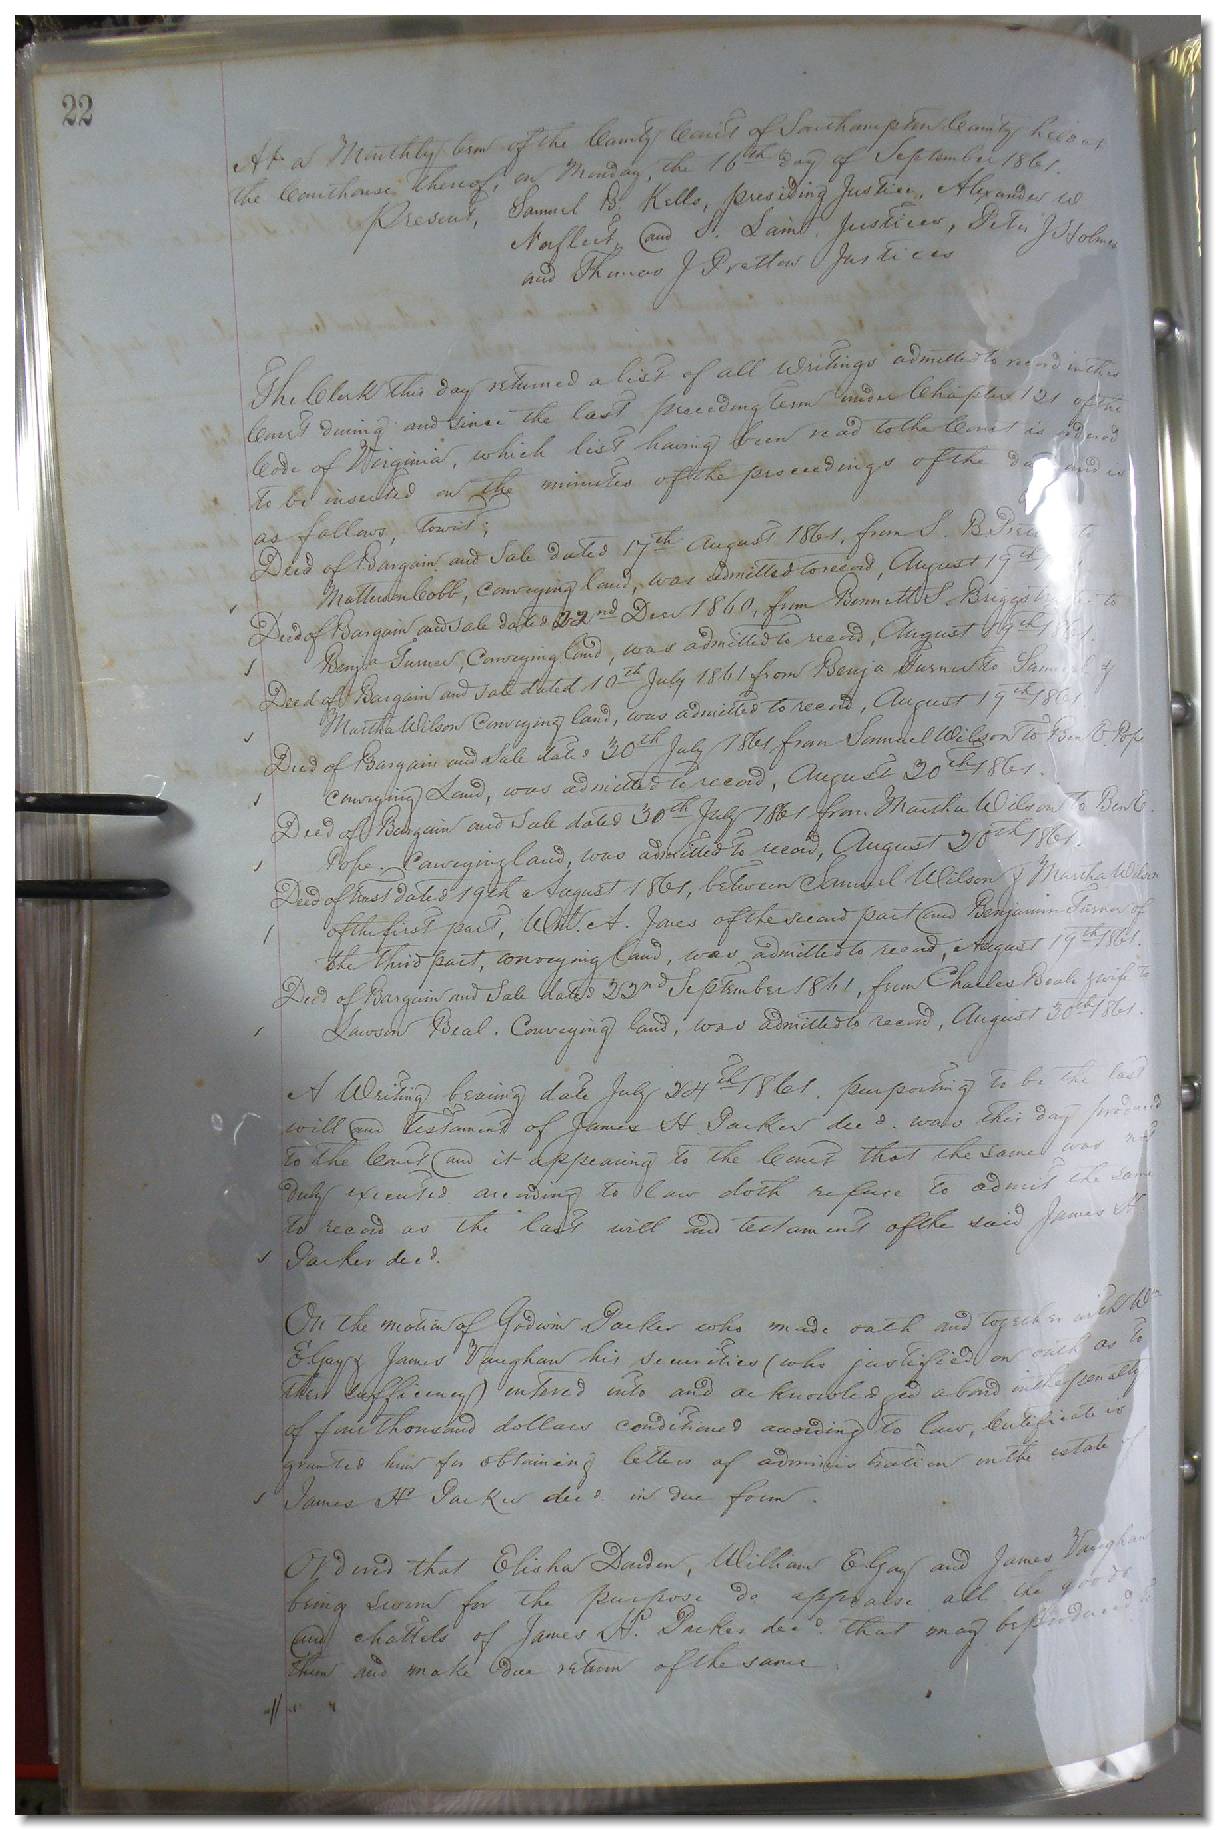 22
At a Monthly term of the County Court of Southampton County held at
the Courthouse thereof, on Monday, the 16th day of September 1861.
Present, Samuel B. Kello, presiding Justice, Alexander W
Norfleet, and S. Lain Justices, Peter J Holmes
and Thomas J Pretlow Justices
The Clerk this day returned a list of all Writings admitted to record in this
Court during and since the last preceding term under Chapter 121 of the
Code of Virginia, which list having been read to the Court is ordered
to be inserted on the minutes of the proceedings of the day and is
as follows, Towit;
Deed of Bargain and Sale dated 17th August 1861, from S. B. to
Matterson Cobb, Conveying land, was admitted to record, August 19th
Deed of Bargain and Sale dated 22nd Decr 1860, from Bennett S. Briggs to
Benja Turner, Conveying land, was admitted to record, August 19th 1861.
Deed of Bargain and Sale dated 10th July 1861 from Benja Turner to Samuel &
Martha Wilson Conveying land, was admitted to record, August 19th 1861
Deed of Bargain and Sale dated 30th July 1861 from Samuel Wilson to Ben C. Pope
Conveying Land, was admitted to record, August 20th 1861.
Deed of Bargain and Sale dated 30th July 1861 from Martha Wilson to Ben C.
Pope. Conveying land, was admitted to record, August 20th 1861.
Deed of trust dated 19th August 1861, between Samuel Wilson & Martha Wilson
of the first part, Wm. A. Jones of the second part and Benjamin Turner of
the third part, conveying land, was admitted to record, August 19th 1861.
Deed of Bargain and Sale dated 22nd September 1861, from Charles Beale & wife to
Lawson Beal. Conveying land, was admitted to record, August 30th 1861.
A Writing bearing date July 24th 1861. purporting to be the last
will and testament of James H. Parker decd. was this day produced
to the Court and it appearing to the Court that the same was not
duly executed according to law doth refuse to admit the same
to record as the last will and testament of the said James H
Parker decd.
On the motion of Godwin Parker who made oath and together with Wm
E. Gay & James Vaughan his securities (who justified on oath as to
their sufficiency) entered into and acknowledged a bond in the penalty
of four thousand dollars conditioned according to law, Certificate is
granted him for obtaining letters of administration on the estate of
James H. Parker decd. in due form.
Ordered that Elisha Darden, William E. Gay and James Vaughan
being sworn for the purpose do appraise all the goods
and chattels of James H. Parker decd. that may be produced to
them and make due return of the same